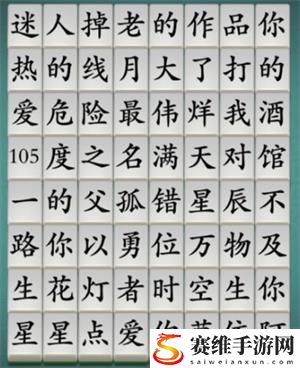 迷人掉老的作品你
热的线月大了打的
爱危险最伟烊我酒
105度之名满天对馆
一的父孤错星辰不
路你以勇位万物及
生花灯者时空生你
星星点爱
赛维手游网
www.saiweianxun.com